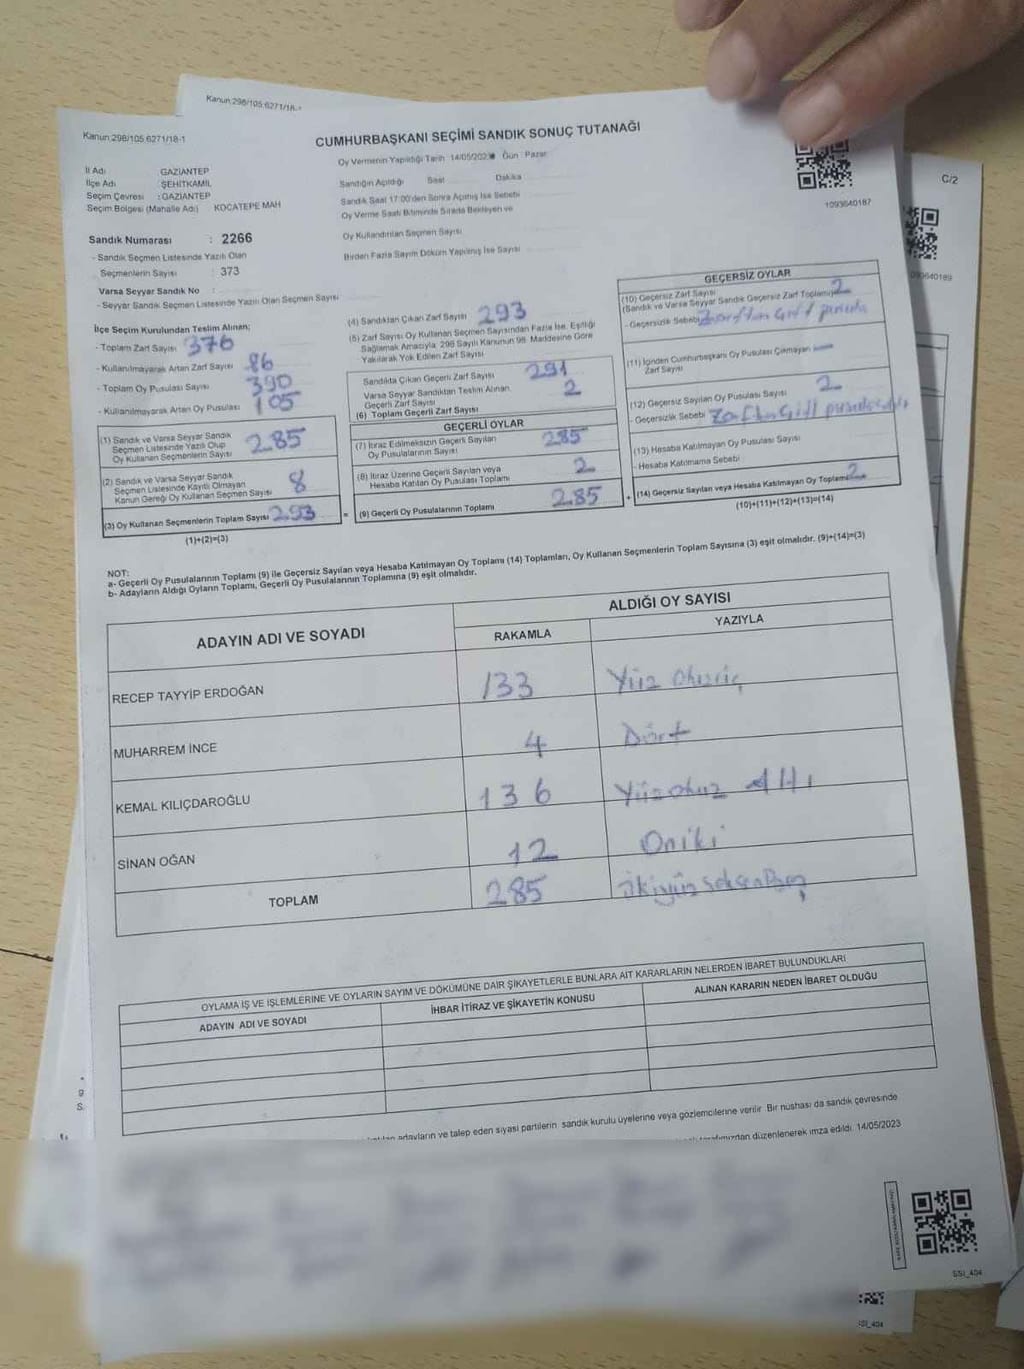 Kanun:298/105.6271/18-1
Kanun:298/105.6271/18-1
CUMHURBAŞKANI SEÇİMİ SANDIK SONUÇ TUTANAĞI
Oy Vermenin Yapıldığı Tarih 14/05/2023 Gün : Pazar
İl Adı GAZİANTEP
İlçe Adı ŞEHİTKAMİL
Seçim Çevresi : GAZİANTEP
Seçim Bölgesi (Mahalle Adı) KOCATEPE MAH
Sandığın Açıldığı Saat Dakika
Sandık Saat 17:00'den Sonra Açılmış İse Sebebi
Oy Verme Saati Bitiminde Sırada Bekleyen ve
Oy Kullandırılan Seçmen Sayısı
Birden Fazla Sayım Döküm Yapılmış İse Sayısı
C/2
1093640187
1093640189
Sandık Numarası : 2266
- Sandık Seçmen Listesinde Yazılı Olan
Seçmenlerin Sayısı : 373
Varsa Seyyar Sandık No :
- Seyyar Sandık Seçmen Listesinde Yazılı Olan Seçmen Sayısı
İlçe Seçim Kurulundan Teslim Alınan;
- Toplam Zarf Sayısı 376
- Kullanılmayarak Artan Zarf Sayısı 86
- Toplam Oy Pusulası Sayısı 390
- Kullanılmayarak Artan Oy Pusulası 105
(1) Sandık ve Varsa Seyyar Sandık
Seçmen Listesinde Yazılı Olup
Oy Kullanan Seçmenlerin Sayısı 285
(2) Sandık ve Varsa Seyyar Sandık
Seçmen Listesinde Kayıtlı Olmayan
Kanun Gereği Oy Kullanan Seçmen Sayısı 8
(3) Oy Kullanan Seçmenlerin Toplam Sayısı 293
(1)+(2)=(3)
(4) Sandıktan Çıkan Zarf Sayısı 293
(5) Zarf Sayısı Oy Kullanan Seçmen Sayısından Fazla İse, Eşitliği
Sağlamak Amacıyla, 298 Sayılı Kanunun 98. Maddesine Göre
Yakılarak Yok Edilen Zarf Sayısı
Sandıkta Çıkan Geçerli Zarf Sayısı 291
Varsa Seyyar Sandıktan Teslim Alınan
Geçerli Zarf Sayısı 2
(6) Toplam Geçerli Zarf Sayısı
GEÇERLİ OYLAR
(7) İtiraz Edilmeksizin Geçerli Sayılan
Oy Pusulalarının Sayısı 285
(8) İtiraz Üzerine Geçerli Sayılan veya
Hesaba Katılan Oy Pusulası Toplamı 2
= (9) Geçerli Oy Pusulalarının Toplamı 285
GEÇERSİZ OYLAR
(10) Geçersiz Zarf Sayısı
(Sandık ve Varsa Seyyar Sandık Geçersiz Zarf Toplamı) 2
- Geçersizlik Sebebi
(11) İçinden Cumhurbaşkanı Oy Pusulası Çıkmayan
Zarf Sayısı
(12) Geçersiz Sayılan Oy Pusulası Sayısı 2
- Geçersizlik Sebebi
(13) Hesaba Katılmayan Oy Pusulası Sayısı
- Hesaba Katılmama Sebebi
+ (14) Geçersiz Sayılan veya Hesaba Katılmayan Oy Toplamı 2
(10)+(11)+(12)+(13)=(14)
NOT:
a- Geçerli Oy Pusulalarının Toplamı (9) ile Geçersiz Sayılan veya Hesaba Katılmayan Oy Toplamı (14) Toplamları, Oy Kullanan Seçmenlerin Toplam Sayısına (3) eşit olmalıdır. (9)+(14)=(3)
b- Adayların Aldığı Oyların Toplamı, Geçerli Oy Pusulalarının Toplamına (9) eşit olmalıdır.
ADAYIN ADI VE SOYADI
ALDIĞI OY SAYISI
RAKAMLA YAZIYLA
RECEP TAYYİP ERDOĞAN 133 Yüz Otuzüç
MUHARREM İNCE 4 Dört
KEMAL KILIÇDAROĞLU 136 Yüzotuz Altı
SİNAN OĞAN 12 Oniki
TOPLAM 285 ikiyüz seksenbeş
OYLAMA İŞ VE İŞLEMLERİNE VE OYLARIN SAYIM VE DÖKÜMÜNE DAİR ŞİKAYETLERLE BUNLARA AİT KARARLARIN NELERDEN İBARET BULUNDUKLARI
ADAYIN ADI VE SOYADI İHBAR İTİRAZ VE ŞİKAYETİN KONUSU ALINAN KARARIN NEDEN İBARET OLDUĞU
adayların ve talep eden siyasi partilerin sandık kurulu üyelerine veya gözlemcilerine verilir. Bir nüshası da sandık çevresinde
düzenlenerek imza edildi. 14/05/2023
SSI_404
SSI_404